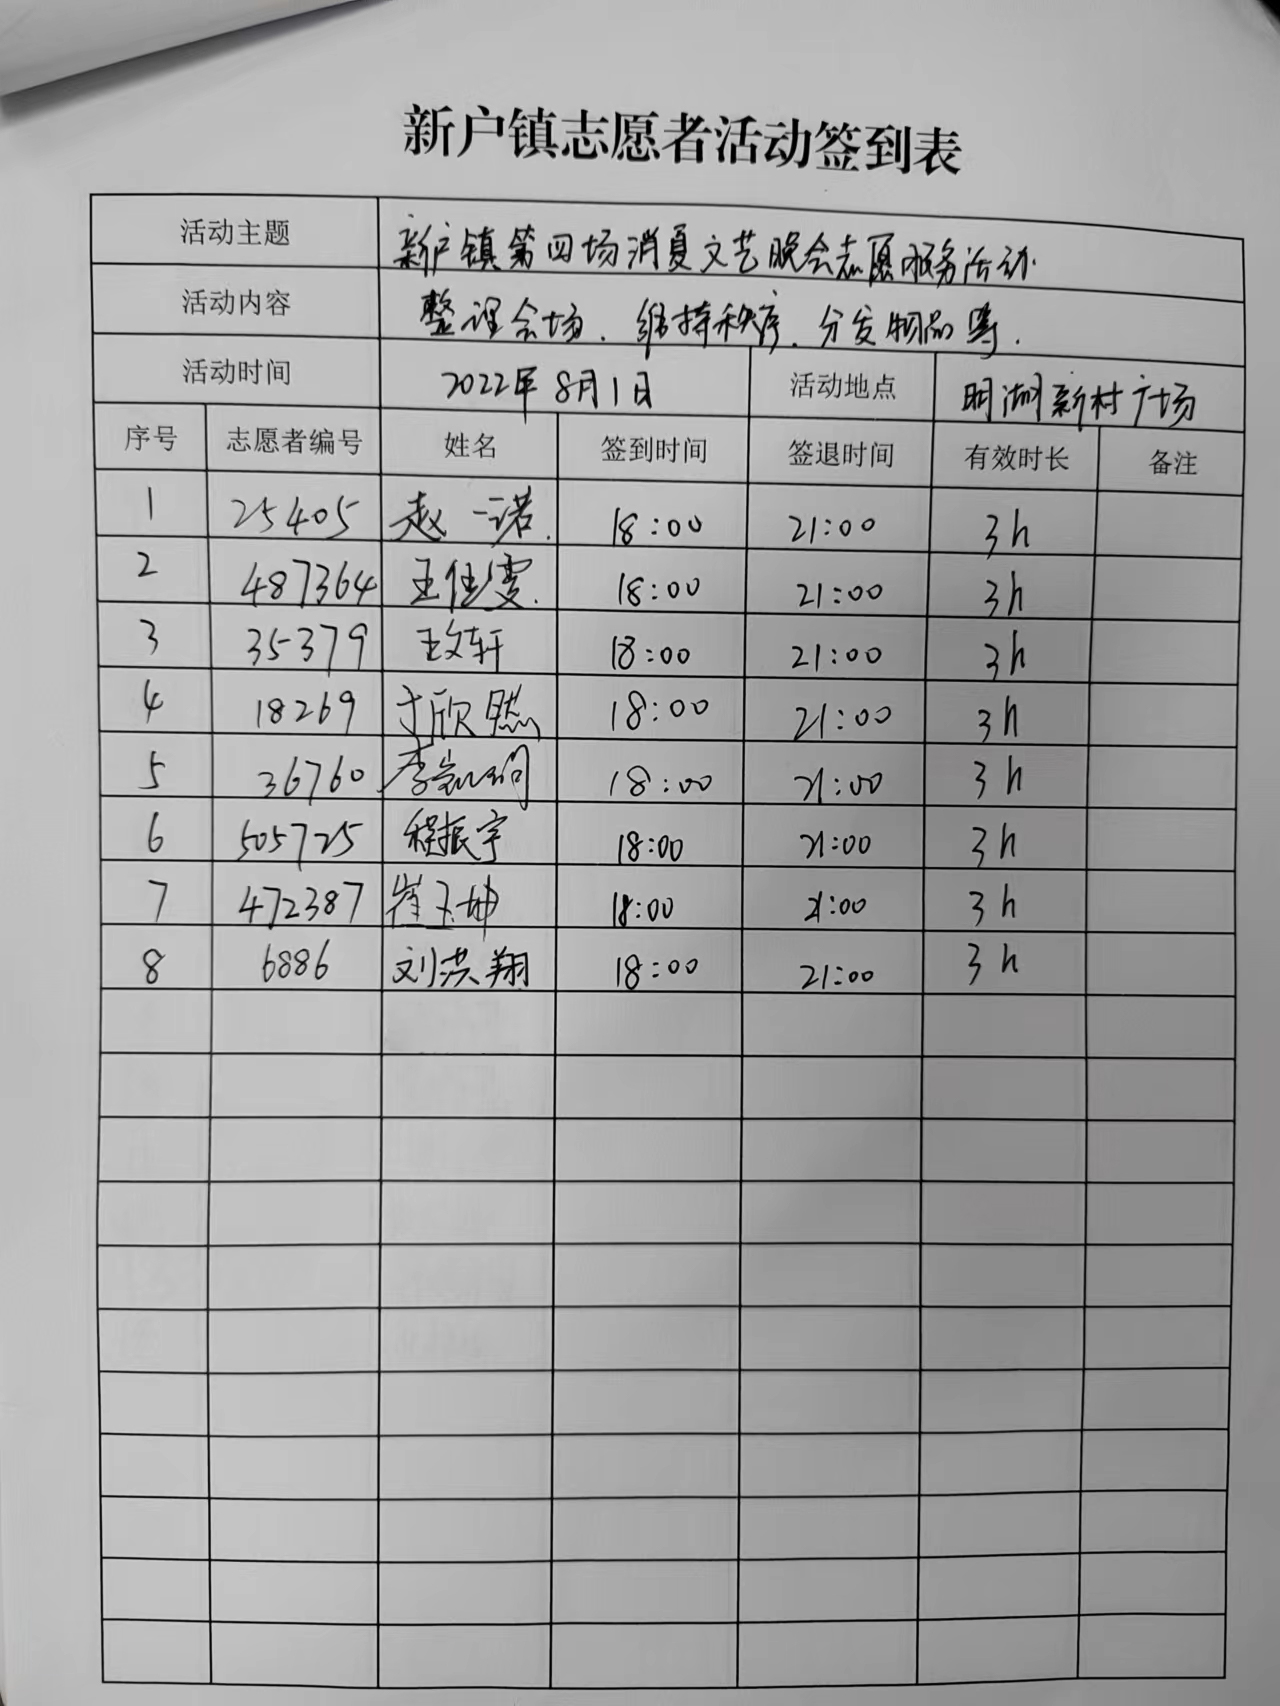 新户镇志愿者活动签到表
活动主题 新户镇第四场消夏文艺晚会志愿服务活动.
活动内容 整理会场、维持秩序、分发物品等.
活动时间 2022年8月1日 活动地点 明湖新村广场
序号 志愿者编号 姓名 签到时间 签退时间 有效时长 备注
1 25405 赵一诺. 18:00 21:00 3h
2 487364 王佳雯. 18:00 21:00 3h
3 35379 王文轩 18:00 21:00 3h
4 18269 于欣然 18:00 21:00 3h
5 36760 李 18:00 21:00 3h
6 505725 程振宇 18:00 21:00 3h
7 472387 崔玉坤 18:00 21:00 3h
8 6886 刘洪翔 18:00 21:00 3h